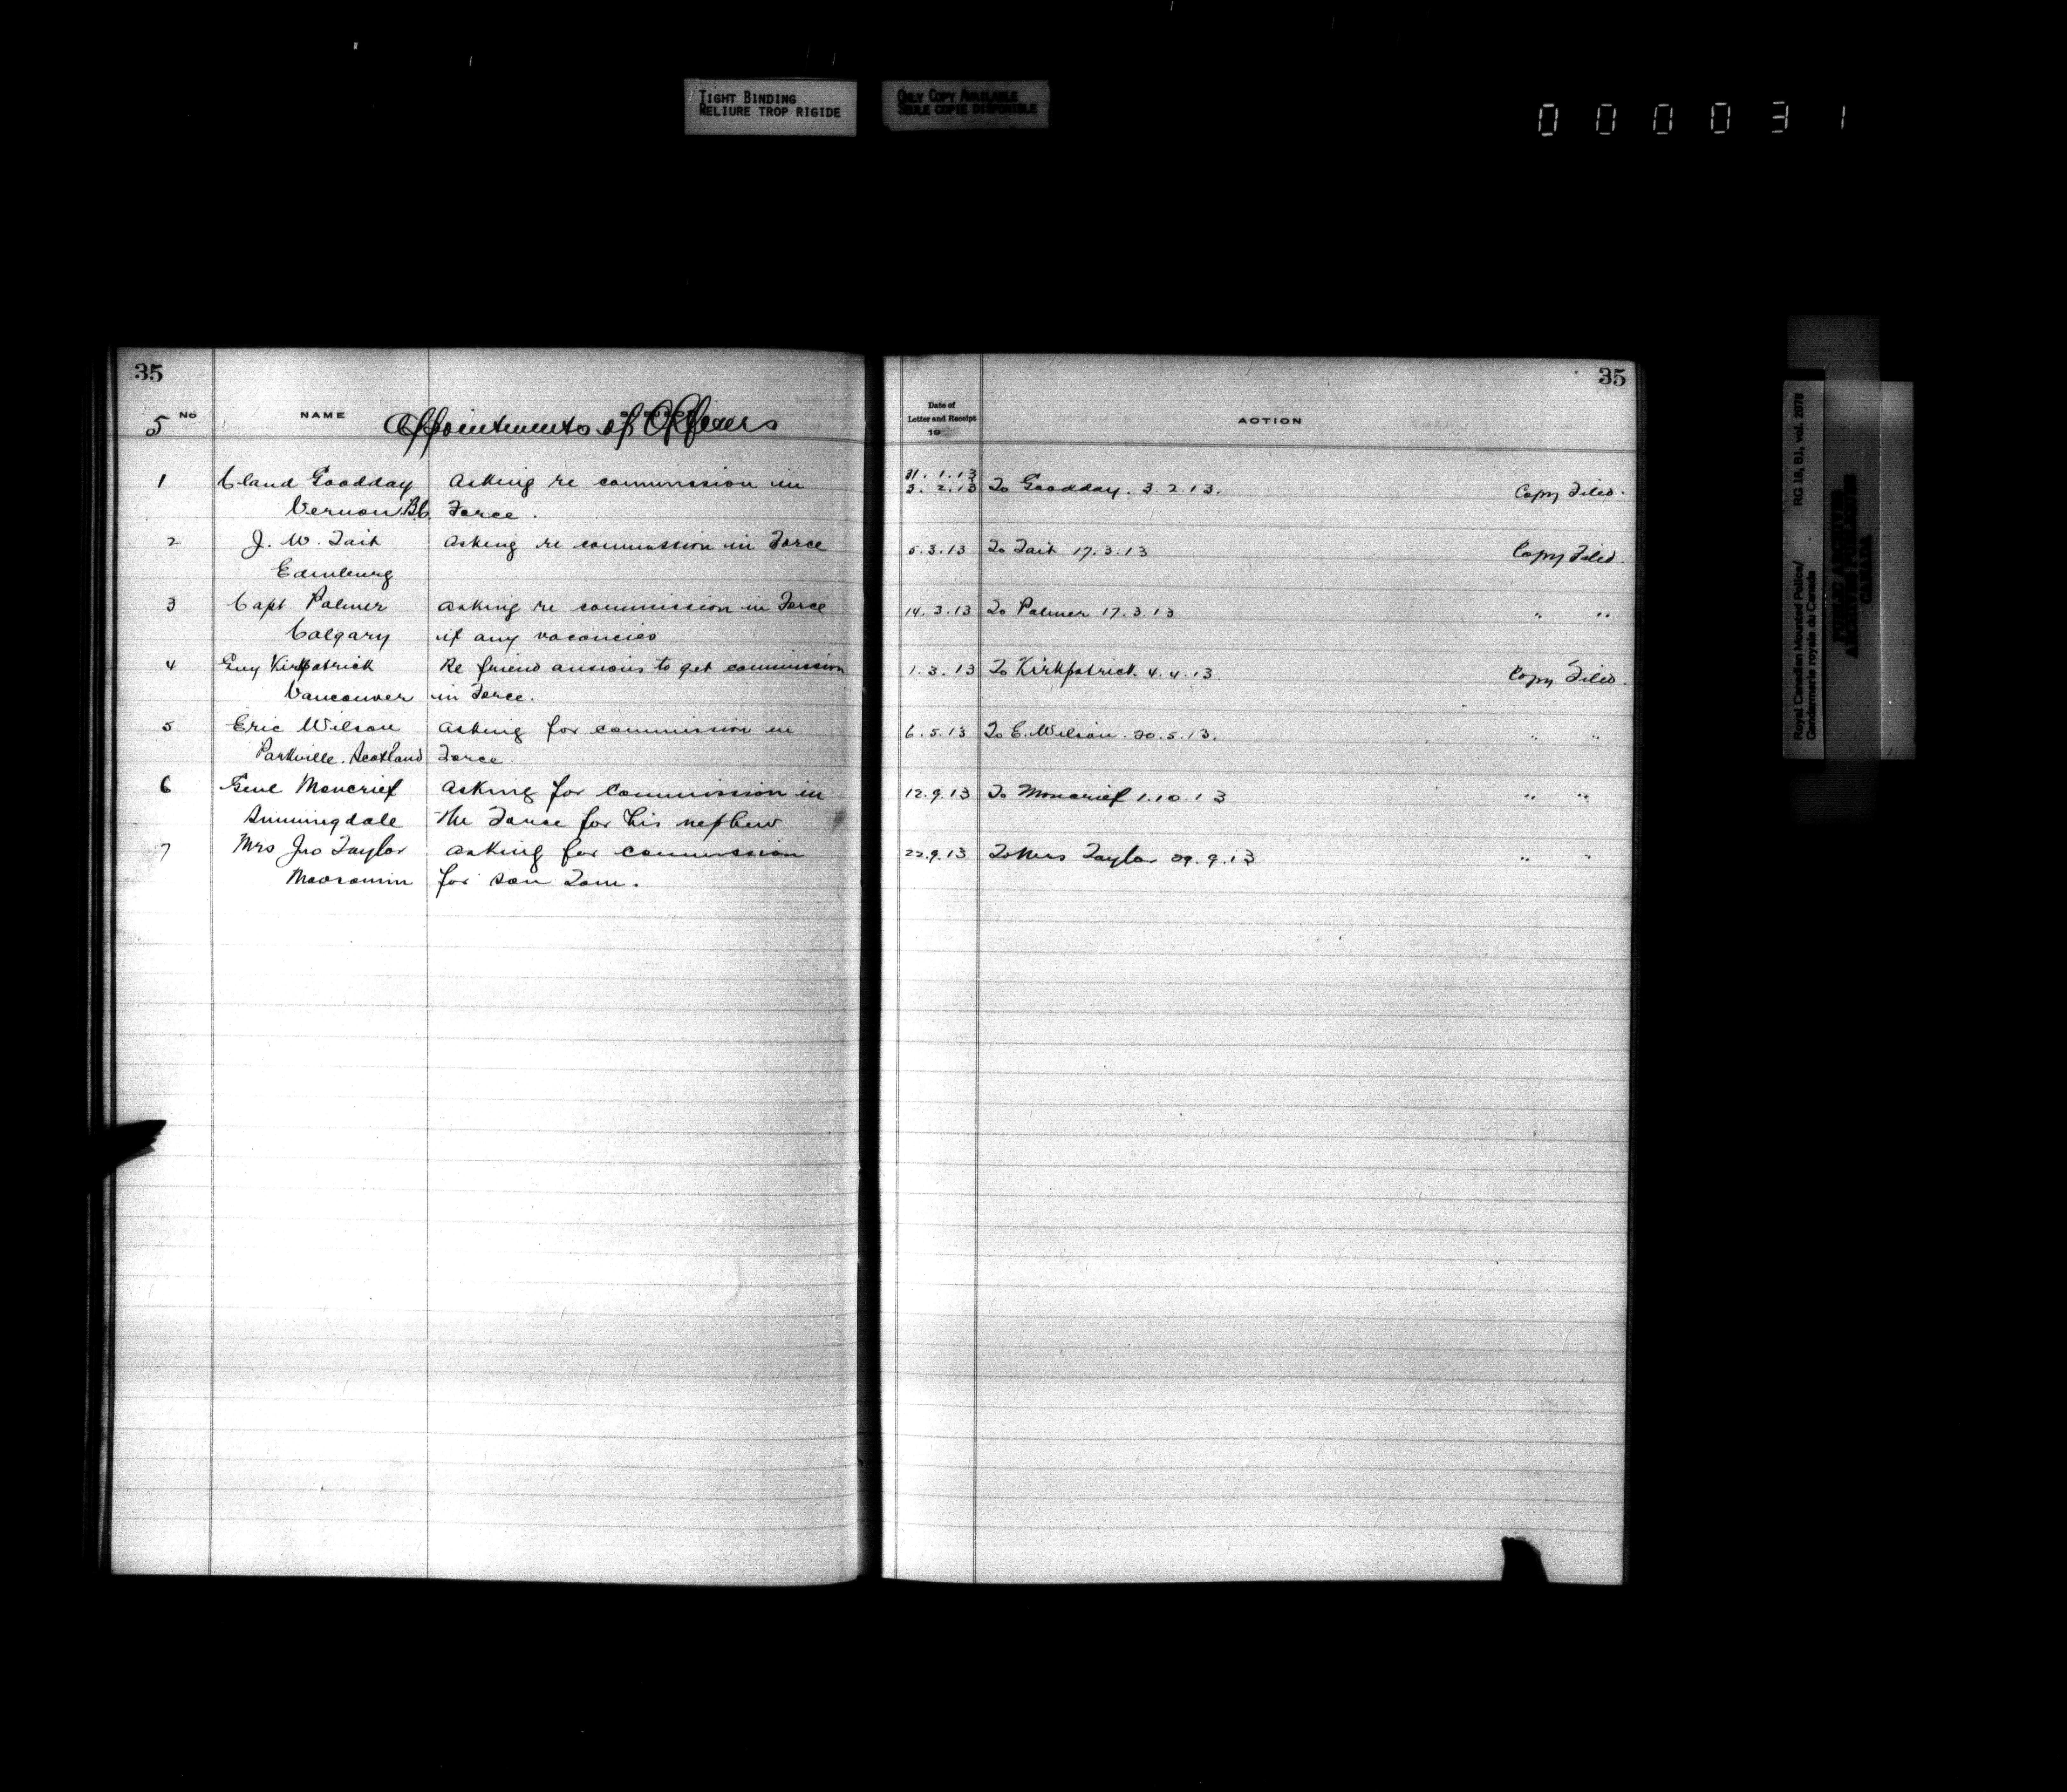 TIGHT BINDING
RELIURE TROP RIGIDE
ONLY COPY AVAILABLE
SEULE COPIE DISPONIBLE
000031
35
35
5 No NAME Appointments of Officers
Date of
Letter and Receipt
19
ACTION
1 Claud Goodday Asking re commission in 31.1.13
3.2.13 To Goodday. 3.2.13. Copy Filed.
Vernon B.C. Force.
2 J. W. Tait Asking re commission in Force 5.3.13 To Tait 17.3.13 Copy Filed.
Edinburg
3 Capt Palmer Asking re commission in Force 14.3.13 To Palmer 17.3.13 " "
Calgary if any vacancies
4 Guy Kirkpatrick Re friend anxious to get commission 1.3.13 To Kirkpatrick. 4.4.13. Copy Filed.
Vancouver in Force.
5 Eric Wilson Asking for commission in 6.5.13 To E. Wilson. 20.5.13. " "
Parkville. Scotland Force.
6 Genl Moncrief Asking for Commission in 12.9.13 To Moncrief 1.10.13 " "
Sunningdale the Force for his nephew
7 Mrs Jno Taylor Asking for commission 22.9.13 To Mrs Taylor 29.9.13 " "
Moosomin for son Tom.
Royal Canadian Mounted Police/
Gendarmerie royale du Canada
RG 18, B1, vol. 2078
PUBLIC ARCHIVES
ARCHIVES PUBLIQUES
CANADA